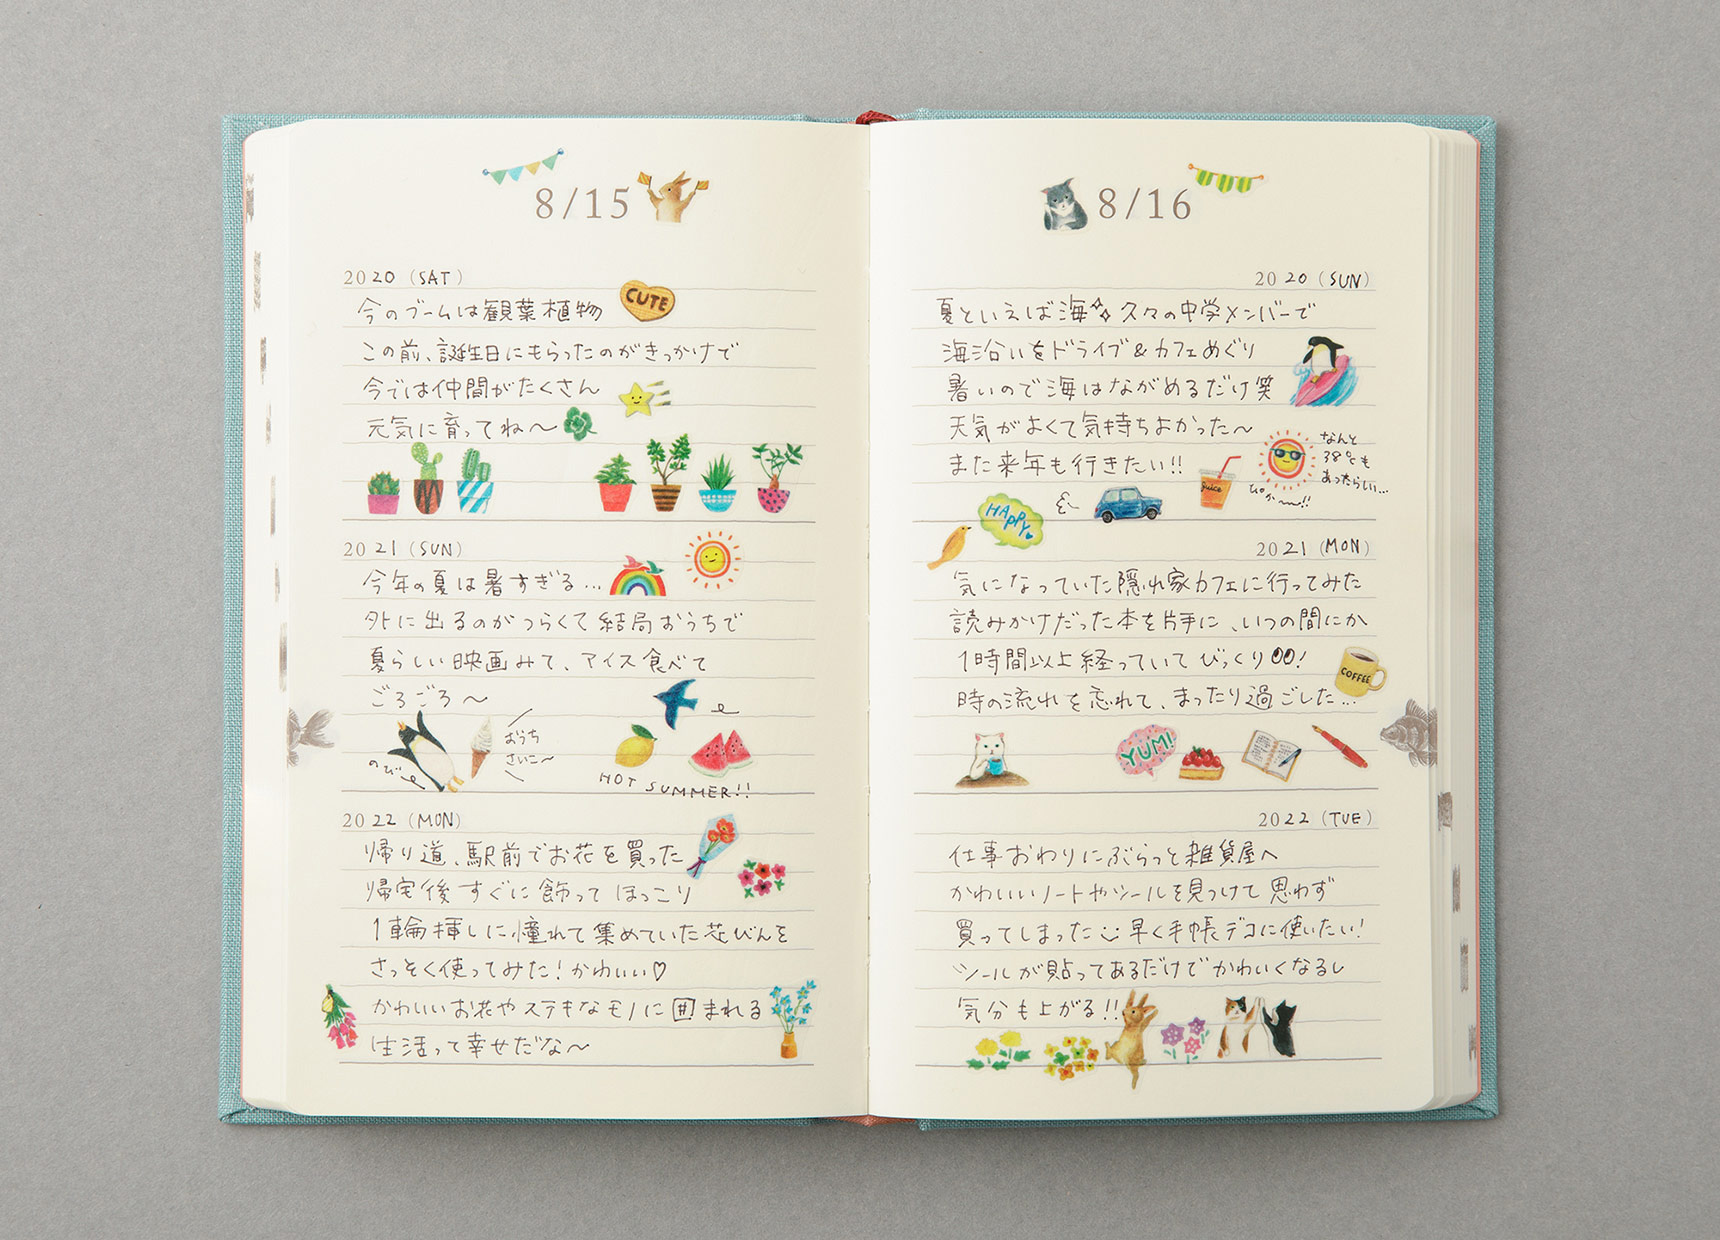 8/15
2020 (SAT)
今のブームは観葉植物
CUTE
この前、誕生日にもらったのがきっかけで
今では仲間がたくさん
元気に育ってね〜
2021 (SUN)
今年の夏は暑すぎる...
外に出るのがつらくて結局おうちで
夏らしい映画みて、アイス食べて
ごろごろ〜
のび〜
おうち
さいこ〜
HOT SUMMER!!
2022 (MON)
帰り道、駅前でお花を買った
帰宅後すぐに飾ってほっこり
1輪挿しに憧れて集めていた花びんを
さっそく使ってみた!かわいい♡
かわいいお花やステキなモノに囲まれる
生活って幸せだな〜
8/16
2020 (SUN)
夏といえば海 久々の中学メンバーで
海沿いをドライブ&カフェめぐり
暑いので海はながめるだけ笑
天気がよくて気持ちよかった〜
また来年も行きたい!!
juice
ぴか〜!!
なんと
38℃も
あったらしい...
HAPPY
2021 (MON)
気になっていた隠れ家カフェに行ってみた
読みかけだった本を片手に、いつの間にか
1時間以上経っていてびっくり!
COFFEE
時の流れを忘れて、まったり過ごした...
YUM!
2022 (TUE)
仕事おわりにぶらっと雑貨屋へ
かわいいノートやシールを見つけて思わず
買ってしまった 早く手帳デコに使いたい!
シールが貼ってあるだけでかわいくなるし
気分も上がる!!